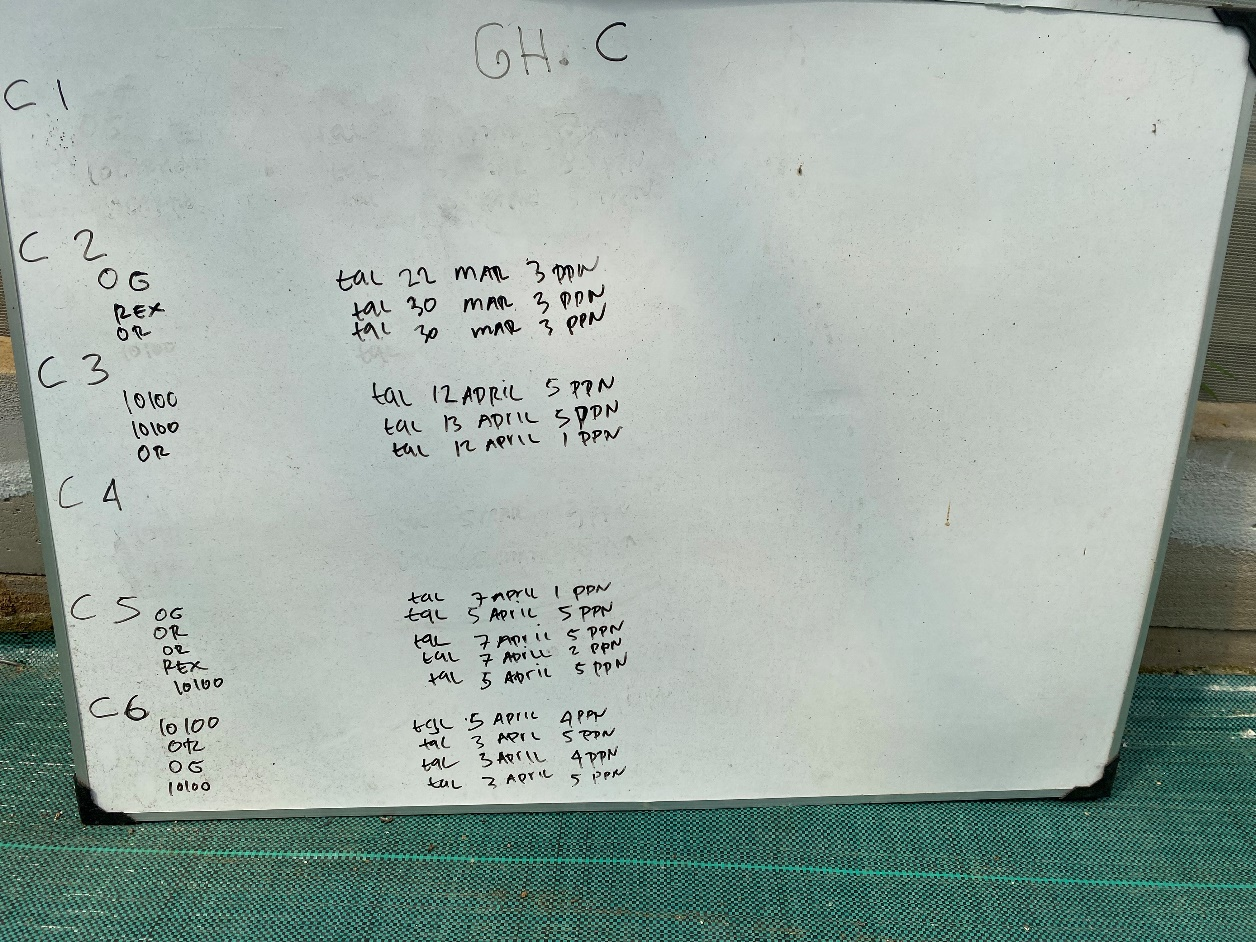 GH. C
C 1
C 2
OG tgl 22 MAR 3 PPN
REX tgl 30 MAR 3 PPN
OR tgl 30 MAR 3 PPN
10100 tgl
C 3
10100 tgl 12 APRIL 5 PPN
10100 tgl 13 APRIL 5 PPN
OR tgl 12 APRIL 1 PPN
C 4
C 5
OG tgl 7 APRIL 1 PPN
OR tgl 5 APRIL 5 PPN
OR tgl 7 APRIL 5 PPN
REX tgl 7 APRILL 2 PPN
10100 tgl 5 APRIL 5 PPN
C6
10100 tgl 5 APRIL 4 PPN
OR tgl 3 APRIL 5 PPN
OG tgl 3 APRIL 4 PPN
10100 tgl 3 APRIL 5 PPN